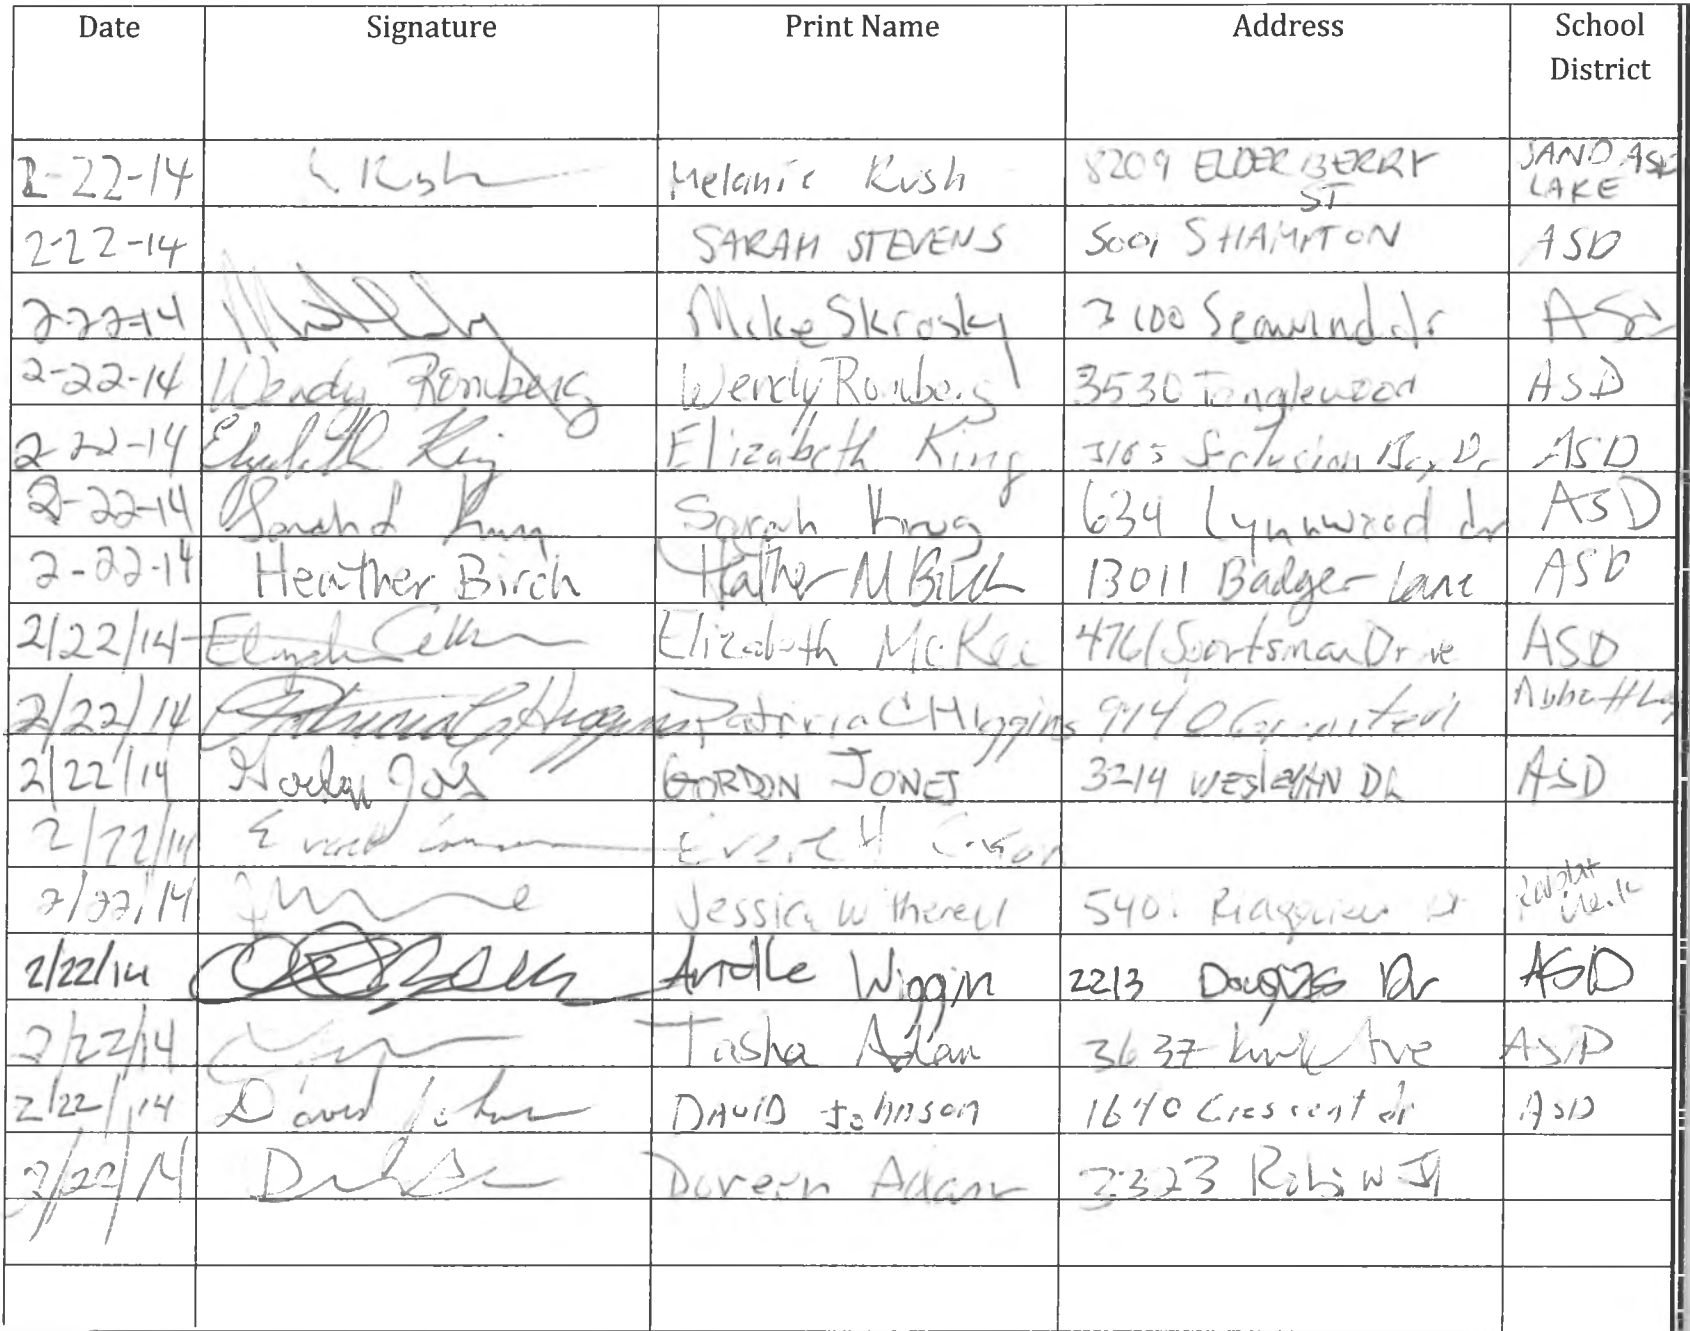 Date Signature Print Name Address School District
2-22-14 Melanie Rush 8209 ELDERBERRY ST SAND LAKE ASD
2-22-14 SARAH STEVENS SHAMPTON ASD
2-22-14 Mike Skrosky 3100 Seawind dr ASD
2-22-14 Wendy Romberg Wendy Romberg 3530 Tanglewood ASD
2-22-14 Elizabeth King Elizabeth King Seclusion Bay Dr ASD
2-22-14 Sarah Krug 634 Lynnwood dr ASD
2-22-14 Heather Birch Heather M Birch 13011 Badger Lane ASD
2/22/14 Elizabeth McKee 4761 Sportsman Drive ASD
2/22/14 Patricia C Higgins Patricia C Higgins 9140
2/22/14 GORDON JONES 3214 WESLEYAN DR ASD
2/22/14 Everett
2/22/14 Jessica Witherell
2/22/14 Arielle Wiggin 2213 Douglas Dr ASD
2/22/14 Tasha Adam 3637 Ave ASD
2/22/14 David Johnson DAVID Johnson 1640 Crescent dr ASD
2/22/14 Doreen Adams 3323 Robin St